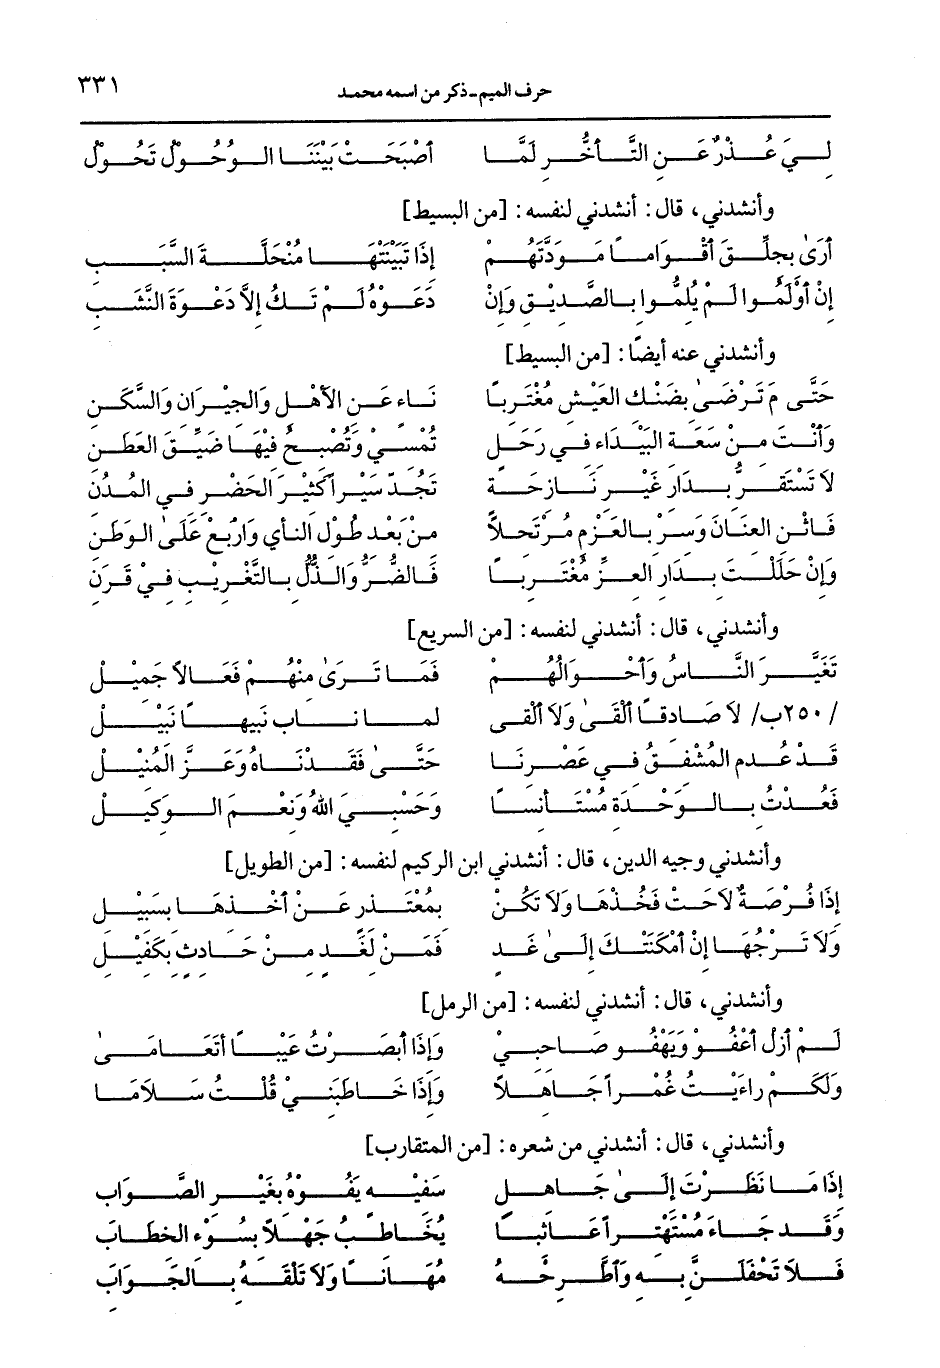 حرف الميم - ذكر من اسمه محمد ٣٣١
لِيَ عُذْرٌ عَنِ التَّأَخُّرِ لَمَّا أَصْبَحَتْ بَيْنَنَا الوُحُولُ تَحُولُ
وأنشدني، قال: أنشدني لنفسه: [من البسيط]
أَرَىٰ بِجِلِّقَ أَقْوَامًا مَوَدَّتُهُمْ إِذَا تَبَيَّنْتَهَا مُنْحَلَّةَ السَّبَبِ
إِنْ أَوْلَمُوا لَمْ يُلِمُّوا بِالصَّدِيقِ وَإِنْ دَعَوْهُ لَمْ تَكُ إِلاَّ دَعْوَةَ النَّشَبِ
وأنشدني عنه أيضًا: [من البسيط]
حَتَّى مَ تَرْضَىٰ بِضَنْكِ العَيْشِ مُغْتَرِبًا نَاءٍ عَنِ الأَهْلِ وَالجِيْرَانِ وَالسَّكَنِ
وَأَنْتَ مِنْ سَعَةِ البَيْدَاءِ فِي رَحَلٍ تُمْسِيْ وَتُصْبِحُ فِيْهَا ضَيِّقَ العَطَنِ
لاَ تَسْتَقِرُّ بِدَارٍ غَيْرِ نَازِحَةٍ تَجُدّ سَيْرًا كَثِيْرَ الحَضْرِ فِي المُدُنِ
فَاثْنِ العِنَانَ وَسِرْ بِالعَزْمِ مُرْتَحِلاً مِنْ بَعْدِ طُوْلِ النأي وَارْبَعْ عَلَىٰ الوَطَنِ
وَإِنْ حَلَلْتَ بِدَارِ العِزِّ مُغْتَرِبًا فَالضُّرُّ وَالذُّلُّ بِالتَّغْرِيْبِ فِيْ قَرَنِ
وأنشدني، قال: أنشدني لنفسه: [من السريع]
تَغَيَّرَ النَّاسُ وَأَحْوَالُهُمْ فَمَا تَرَىٰ مِنْهُمْ فَعَالاً جَمِيْلْ
/٢٥٠ب/ لاَ صَادِقًا أَلْقَىٰ وَلاَ أَلْقَى لِمَا نَابَ نَبِيهًا نَبِيْلْ
قَدْ عُدِمَ المُشْفِقُ فِي عَصْرِنَا حَتَّىٰ فَقَدْنَاهُ وَعَزَّ المُنِيْلْ
فَعُدْتُ بِالوَحْدَةِ مُسْتَأْنِسًا وَحَسْبِيَ اللهُ وَنِعْمَ الوَكِيْلْ
وأنشدني وجيه الدين، قال: أنشدني ابن الركيم لنفسه: [من الطويل]
إِذَا فُرْصَةٌ لاَحَتْ فَخُذْهَا وَلاَ تَكُنْ بِمُعْتَذِرٍ عَنْ أَخْذِهَا بِسَبِيْلِ
وَلاَ تَرْجُهَا إِنْ أَمْكَنَتْكَ إِلَىٰ غَدٍ فَمَنْ لِغَدٍ مِنْ حَادِثٍ بِكَفِيْلِ
وأنشدني، قال: أنشدني لنفسه: [من الرمل]
لَمْ أَزَلْ أَعْفُو وَيَهْفُو صَاحِبِيْ وَإِذَا أَبْصَرْتُ عَيْبًا أَتَعَامَىٰ
وَلَكَمْ رِاءَيْتُ غُمْرًا جَاهِلاً وَإِذَا خَاطَبَنِيْ قُلْتُ سَلاَمَا
وأنشدني، قال: أنشدني من شعره: [من المتقارب]
إِذَا مَا نَظَرْتَ إِلَىٰ جَاهِلٍ سَفِيْهٍ يَفُوْهُ بِغَيْرِ الصَّوَابِ
وَقَدْ جَاءَ مُسْتَهْتِرًا عَائِبًا يُخَاطِبُ جَهْلاً بِسُوْءِ الخِطَابِ
فَلاَ تَحْفَلَنَّ بِهِ وَاطَّرِحْهُ مُهَانًا وَلاَ تَلْقَهُ بِالجَوَابِ